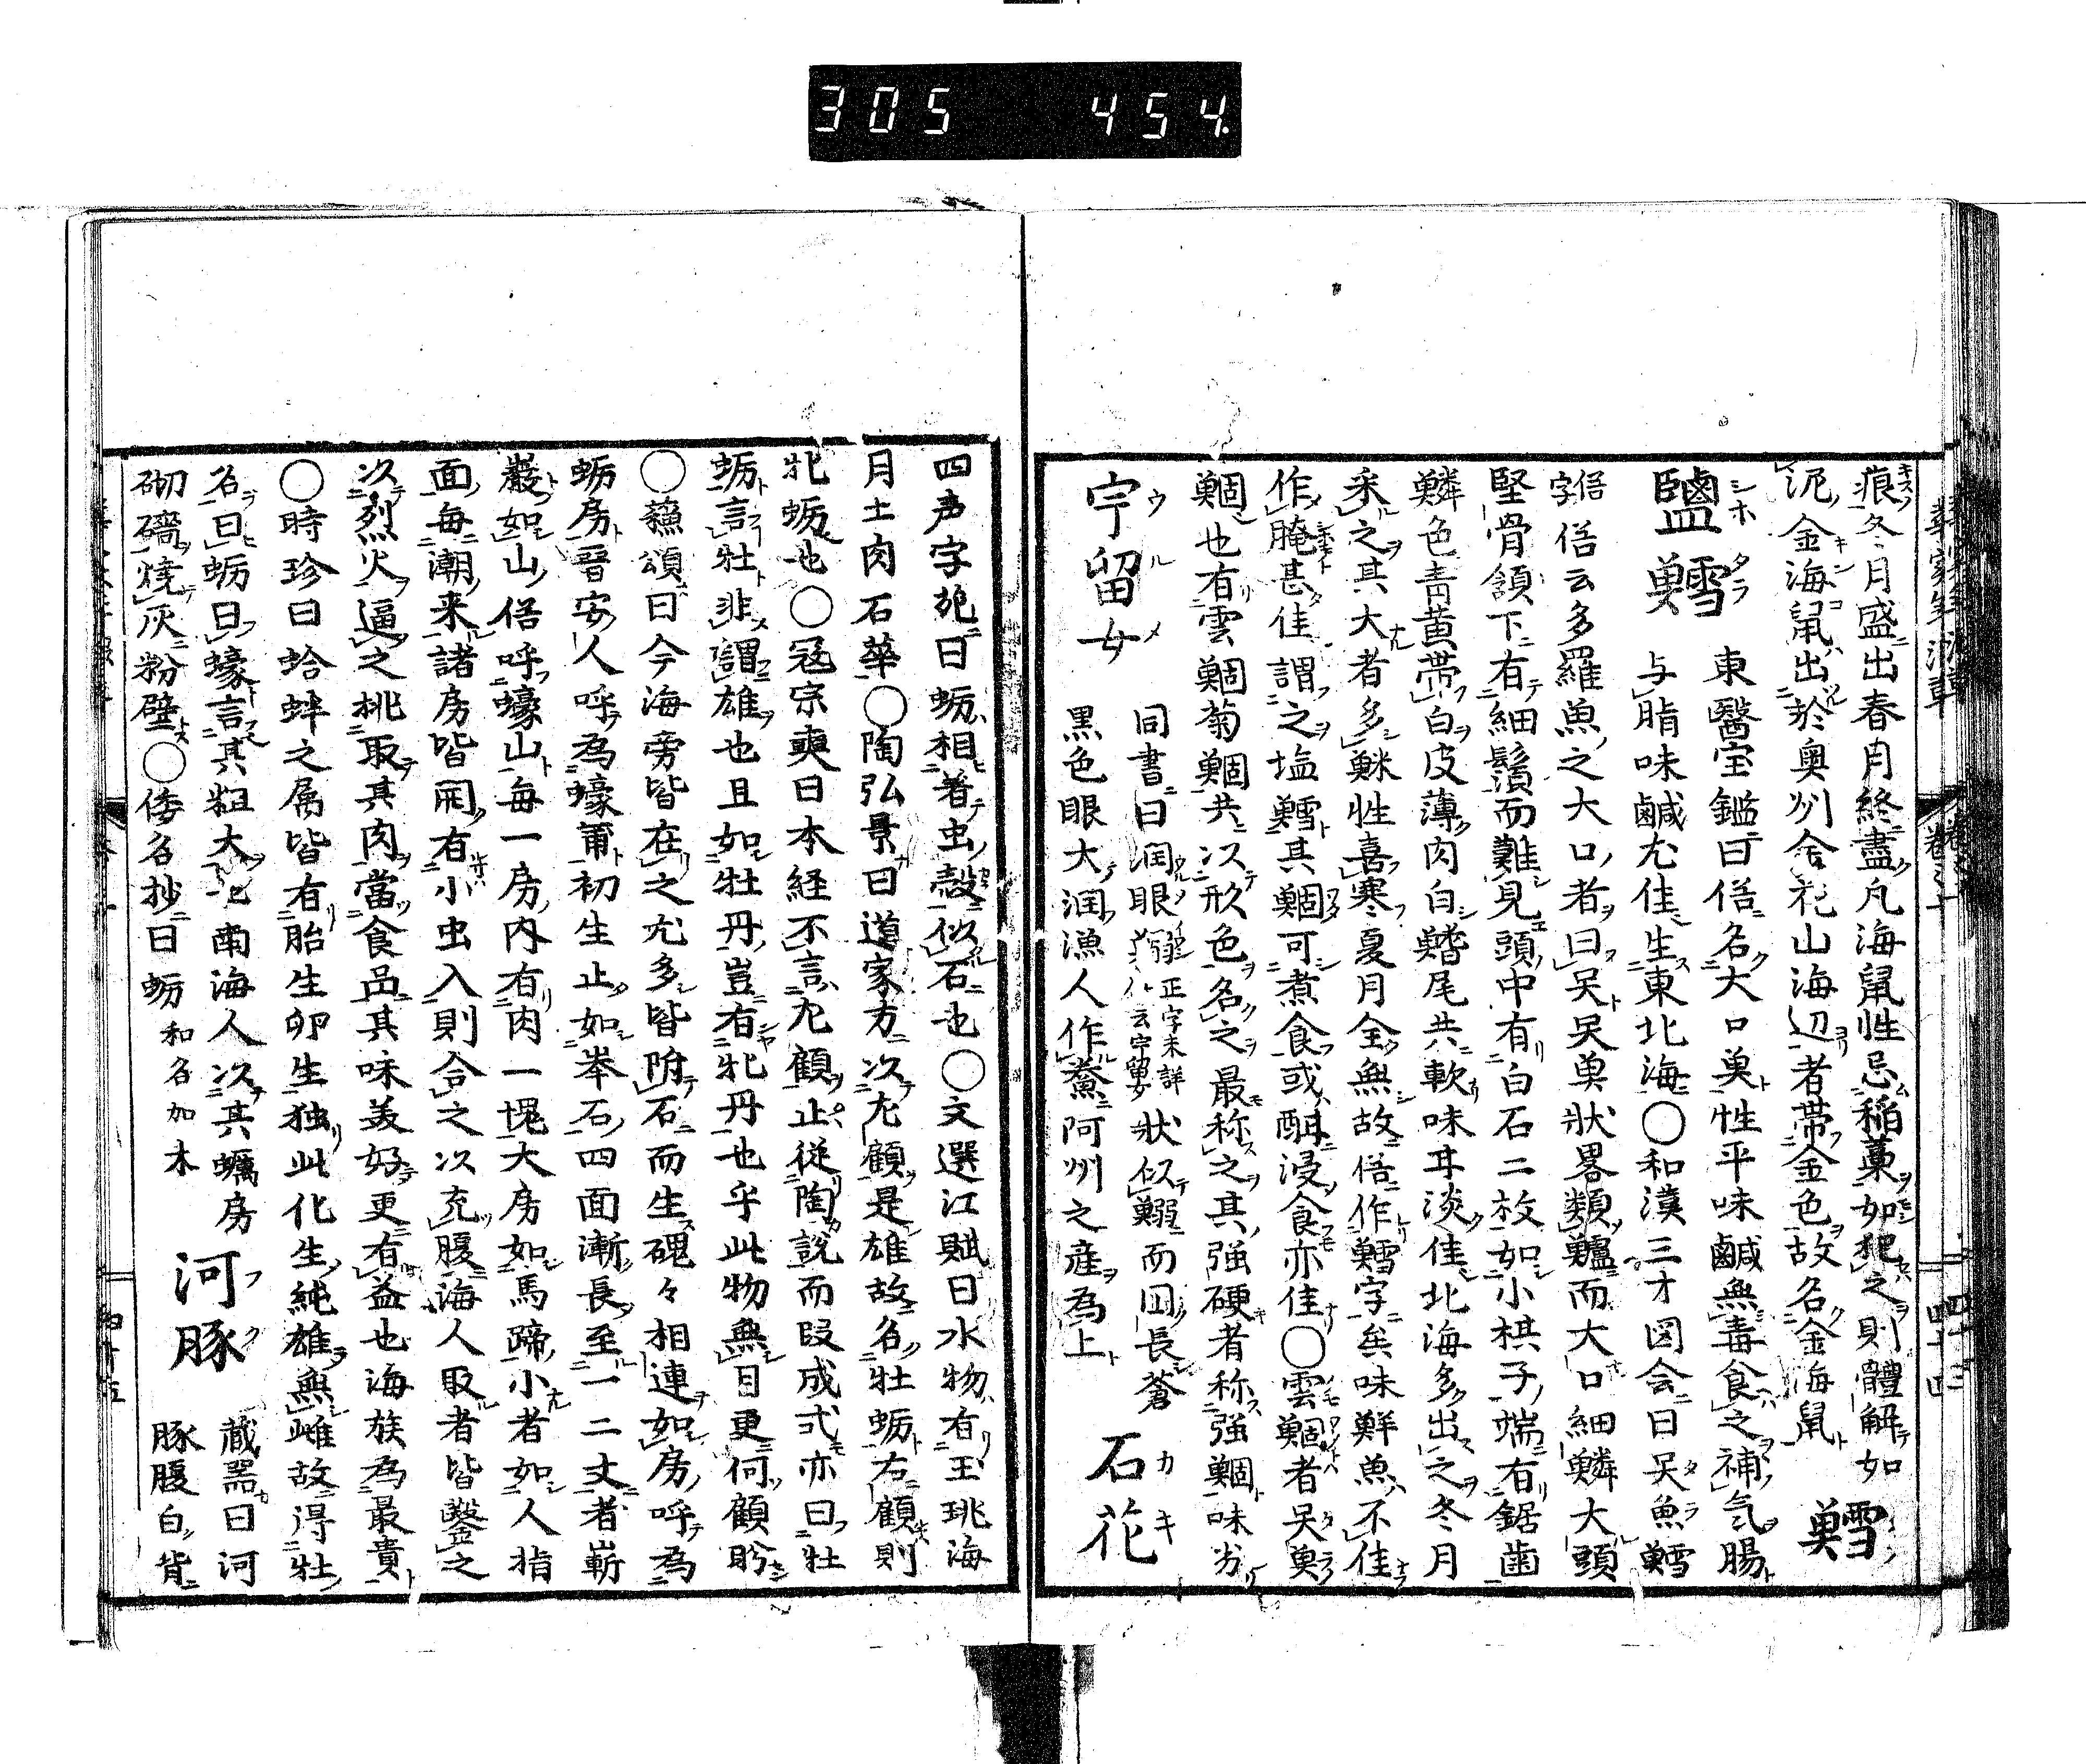 305 454.
痕冬月盛出春月終盡凡海鼠性忌稲藁如犯之則體解如
泥金海鼠出於奥州金花山海辺者帯金色故名金海鼠 鱈
東醫宝鑑曰俗名大口魚性平味鹹無毒食之補气腸
鹽鱈
与脂味鹹尤佳生東北海○和漢三才図会曰吴魚鱈
俗字 俗云多羅魚之大口者曰吴吴魚狀畧類鱸而大口細鱗大頭
堅骨頷下有細鬚而難見頭中有白石二枚如小棋子端有鋸歯
鱗色青黄帯白皮薄肉白鰭尾共軟味耳淡佳北海多出之冬月
采之其大者多鮴性喜寒夏月全無故俗作鱈字矣味鮮魚不佳
作腌甚佳謂之塩鱈其鯝可煮食或酢浸食亦佳○雲鯝者吴魚
鯝也有雲鯝菊鯝共以形色名之最称之其強硬者称强鯝味劣
宇留女 同書曰潤眼鰯 正字未詳 云宇留女 狀似鰯而囬長蒼
黒色眼大潤漁人作鯗阿州之産為上 石花
四声字苑曰蛎相着虫殻似石也○文選江賦曰水物有王珧海
月土肉石華○陶弘景曰道家方以左顧是雄故名牡蛎右顧則
牝蛎也○冦宗奭曰本経不言左顧止従陶說而段成式亦曰牡
蛎言牡非謂雄也且如牡丹豈有牝丹也乎此物無目更何顧盼
○蘓頌曰今海旁皆在之尤多皆附石而生磈々相連如房呼為
蛎房晋安人呼為蠔莆初生止如拳石四面漸長至一二丈者嶄
巖如山俗呼蠔山每一房内有肉一塊大房如馬蹄小者如人指
面每潮来諸房皆開有小虫入則合之以充腹海人取者皆鑿之
以烈火逼之挑取其肉當食品其味美好更有益也海族為最貴
○時珍曰蛤蚌之属皆有胎生卵生独此化生純雄無雌故得牡
名曰蛎曰蠔言其粗大也南海人以其蠣房
砌墻燒灰粉壁○倭名抄曰蛎 和名加木
河豚 蔵噐曰河
豚腹白背